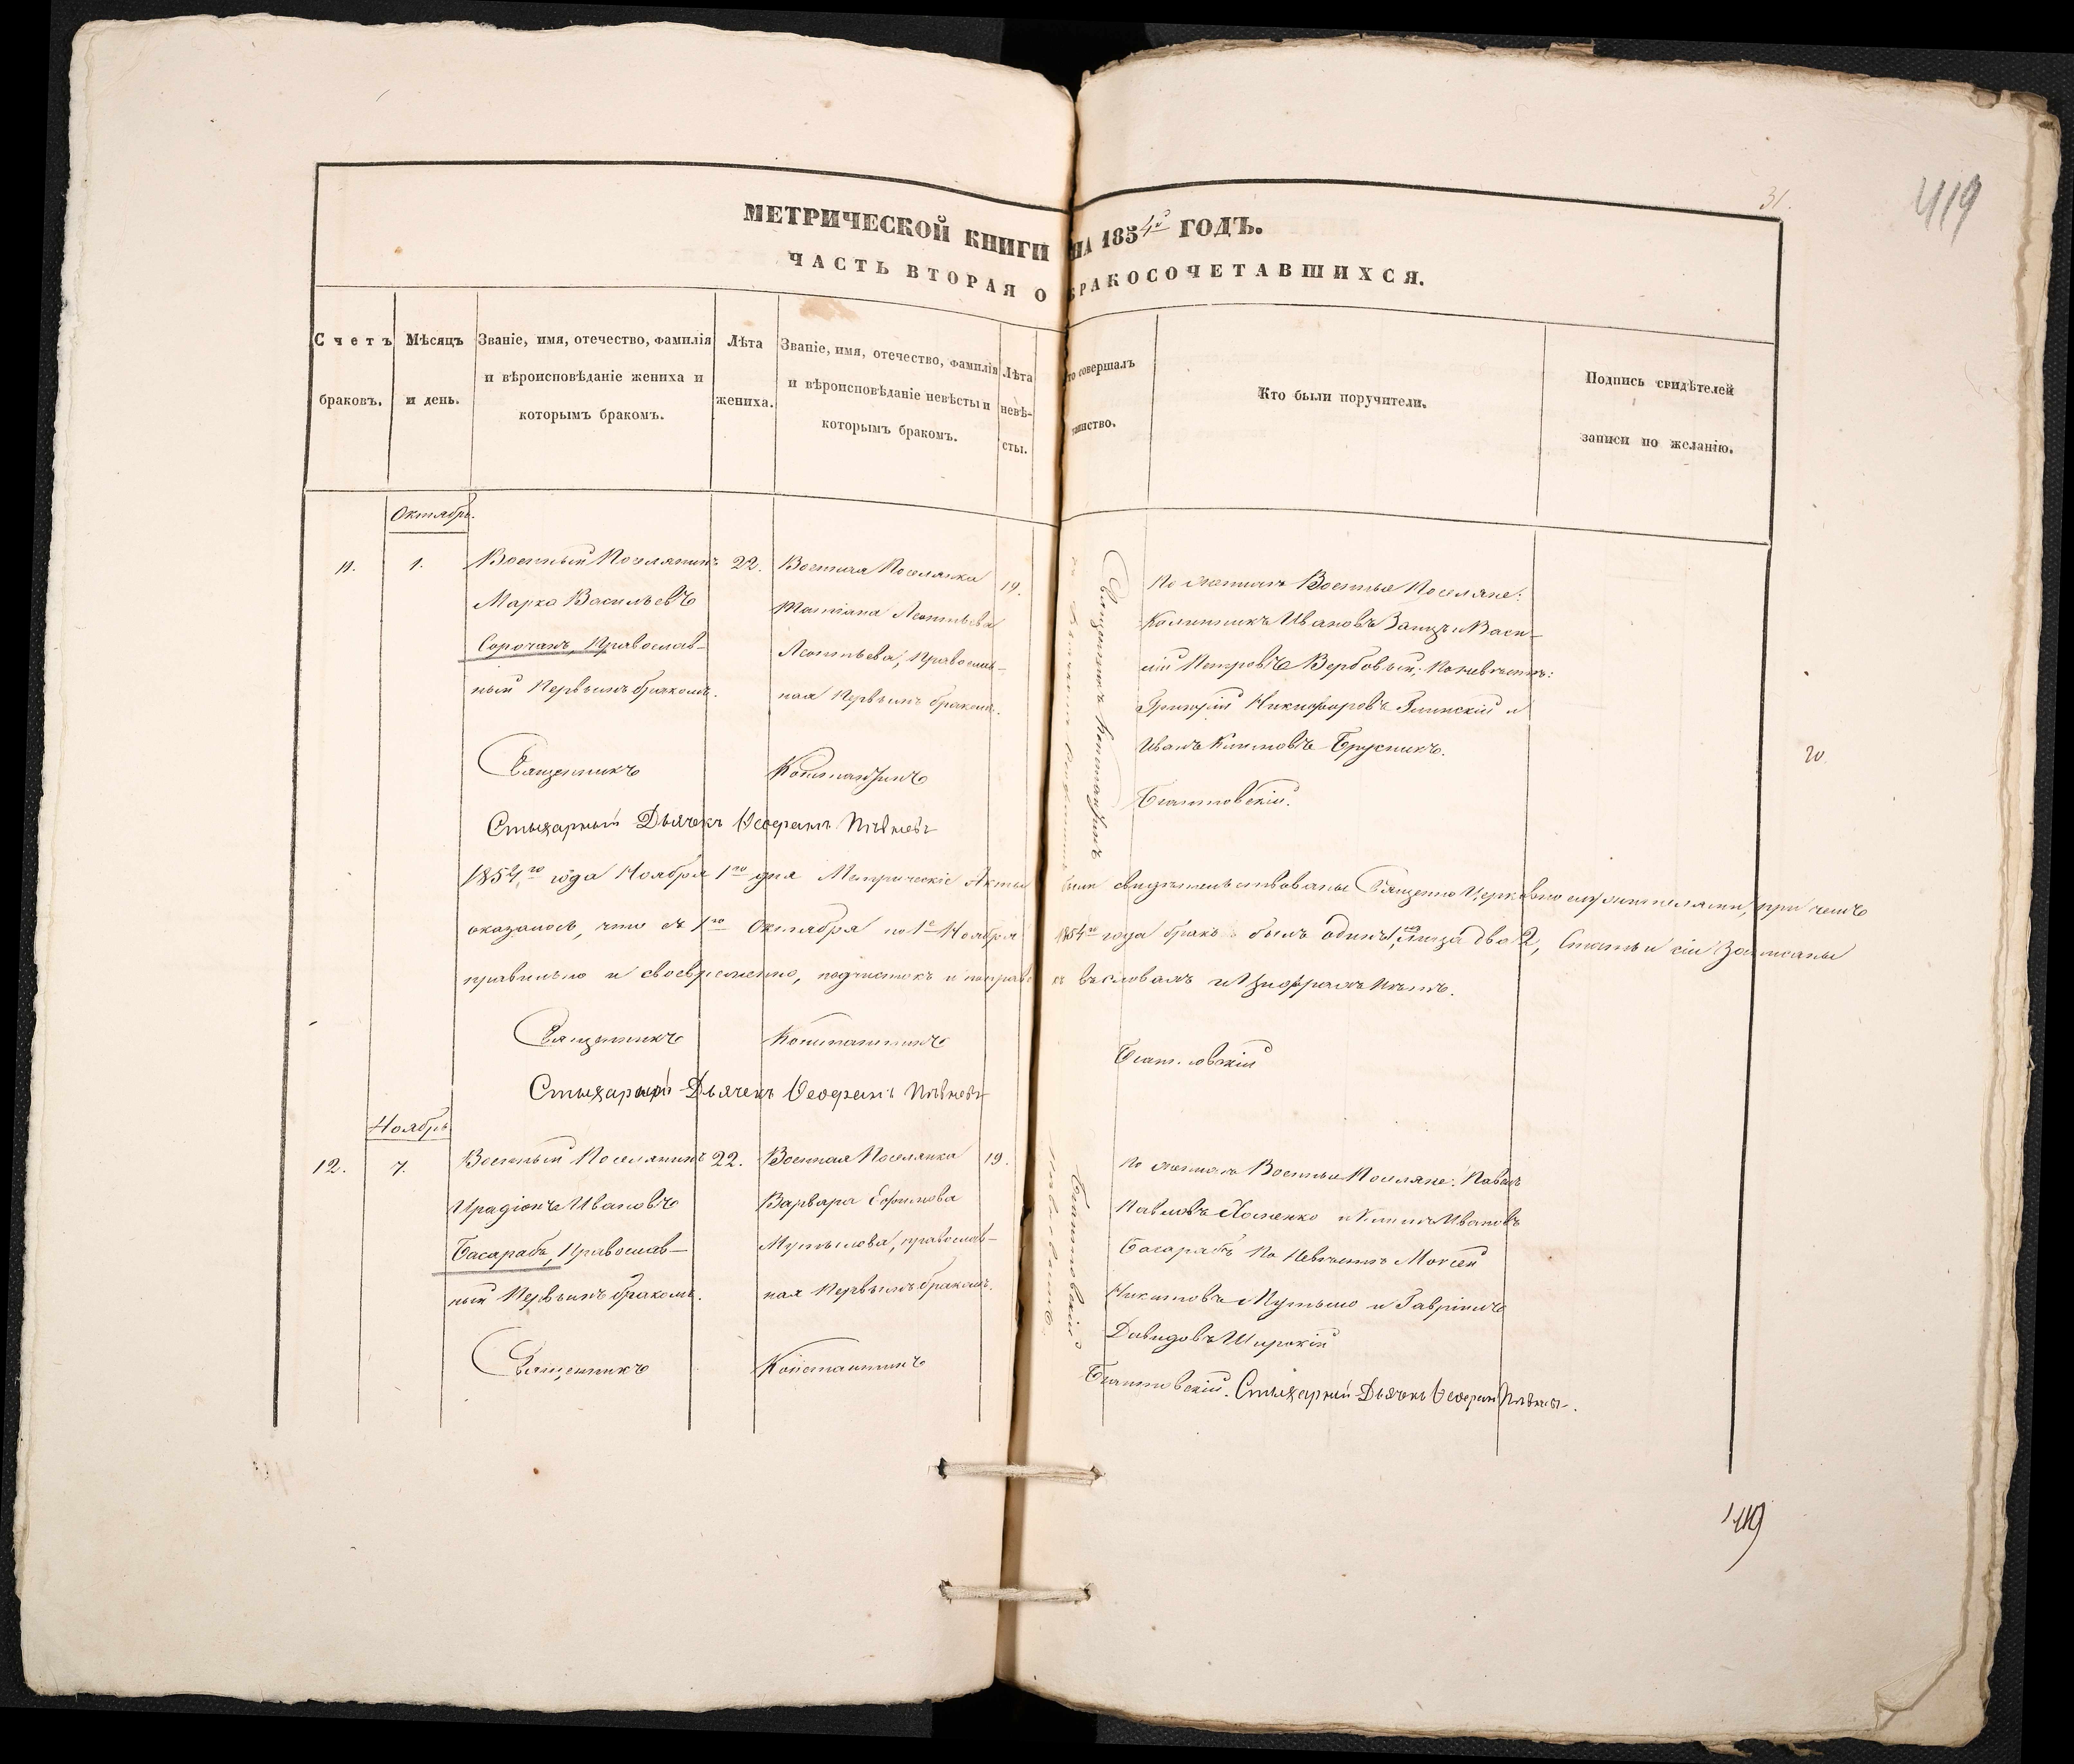 419
31.
МЕТРИЧЕСКОЙ КНИГИ НА 1854й ГОДЪ.
ЧАСТЬ ВТОРАЯ О БРАКОСОЧЕТАВШИХСЯ.
Счетъ браковъ.
Мѣсяцъ и день.
Званіе, имя, отечество, фамилія
и вѣроисповѣданіе жениха и
которымъ бракомъ.
Лѣта жениха.
Званіе, имя, отечество, фамилія
и вѣроисповѣданіе невѣсты и
которымъ бракомъ.
Лѣта невѣ-
сты.
то совершалъ
таинство.
Кто были поручители.
Подпись свидѣтелей
записи по желанію.
Октябрь.
11.
1.
Военный Поселянинъ
Марко Васильевъ
Сорочанъ, Православ-
ный Первымъ бракомъ.
22.
Военная Поселянка
Татіана Леонтьева
Леонтьева, Православ-
ная Первымъ бракомъ.
19.
Священникъ Константинъ
По женихѣ Военные Поселяне:
Ивановъ Заяцъ и Васи-
лій Петровъ Вербовый; По невѣстѣ:
Григорій Никифоровъ Глинскій и
Иванъ Климовъ Брусникъ.
20.
Священникъ Константинъ
Стихарный Дьячекъ Ѳеофанъ
1854го года Ноября 1го дня Метрическіе Акты были свидѣтельствованы Священно Церковно служителями, при чемъ
оказалось, что съ 1го Октября по 1е Ноября 1854го года бракъ былъ одинъ 1, лица два 2, Статьи сіи Записаны
правильно и своевременно, подчистокъ и поправокъ въ словахъ и Цифрахъ нѣтъ.
Священникъ Константинъ
Стихарный Дьячекъ Ѳеофанъ
Ноябрь
12.
7.
Военный Поселянинъ
Иродіонъ Ивановъ
Басарабъ, Православ-
ный Первымъ бракомъ.
22.
Военная Поселянка
Варвара Ефимова
православ-
ная Первымъ бракомъ.
19.
По женихѣ Военные Поселяне: Павелъ
Павловъ Хоменко и Ивановъ
Басарабъ По Невѣстѣ Моисей
Никитовъ и Гавріилъ
Давидовъ Широкій
Священникъ Константинъ
Стихарный Дьячекъ Ѳеофанъ
419